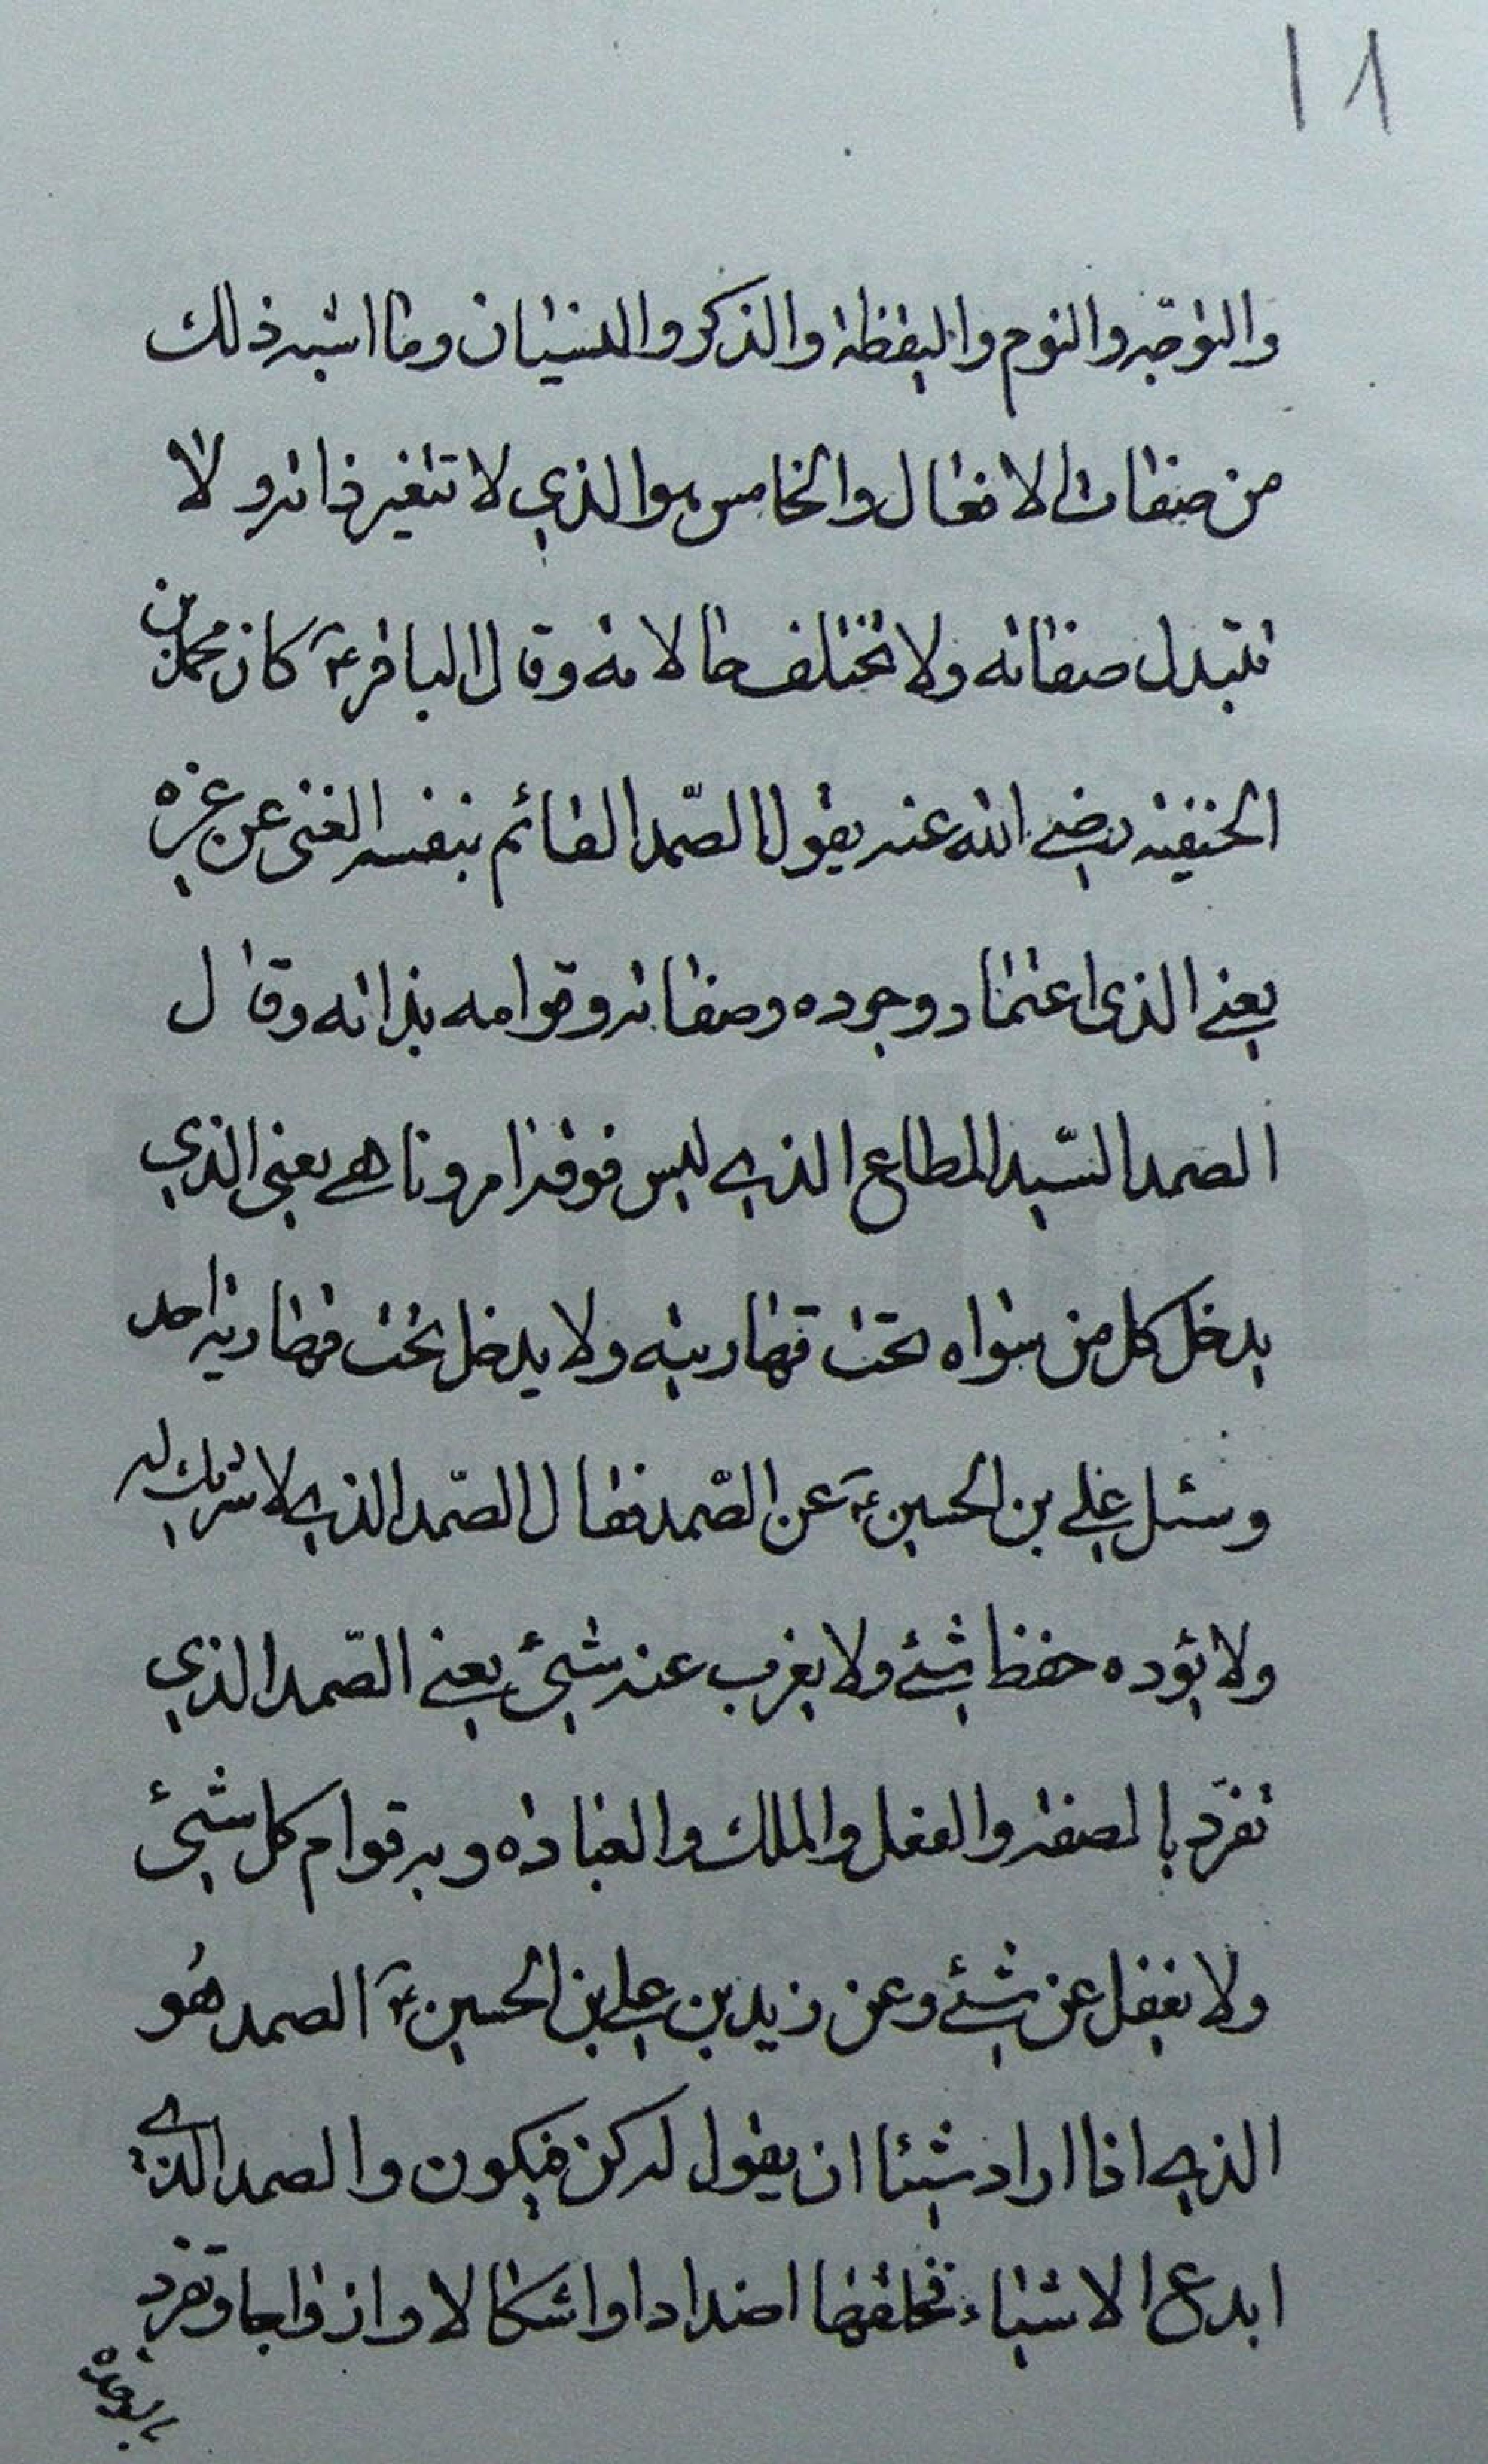 ١٨
والتوجه والنوم واليقظة والذكر والنسيان وما اشبه ذلك
من صفات الافعال والخامس هو الذي لا تتغير ذاته ولا
تتبدل صفاته ولا تختلف حالاته وقال الباقر ع كان محمد بن
الحنفية رضي الله عنه يقول الصّمد القائم بنفسه الغني عن غيره
يعني الذي اعتماد وجوده وصفاته وقوامه بذاته وقال
الصمد السّيد المطاع الذي ليس فوقه امر وناهي يعني الذي
يدخل كل من سواه تحت قهاريته ولا يدخل تحت قهارية احد
وسئل علي بن الحسين ع عن الصّمد فقال الصّمد الذي لا شريك له
ولا يؤده حفظ شئ ولا يغرب عنه شئ يعني الصّمد الذي
تفرّد بالصفة والفعل والملك والعبادة وبه قوام كل شئ
ولا يغفل عن شئ وعن زيد بن علي بن الحسين ع الصمد هُو
الذي اذا اراد شيئا ان يقول له كن فيكون والصمد الذي
ابدع الاشياء فخلقها اضدادا واشكالا وازواجا وتفرد
بالوحدة